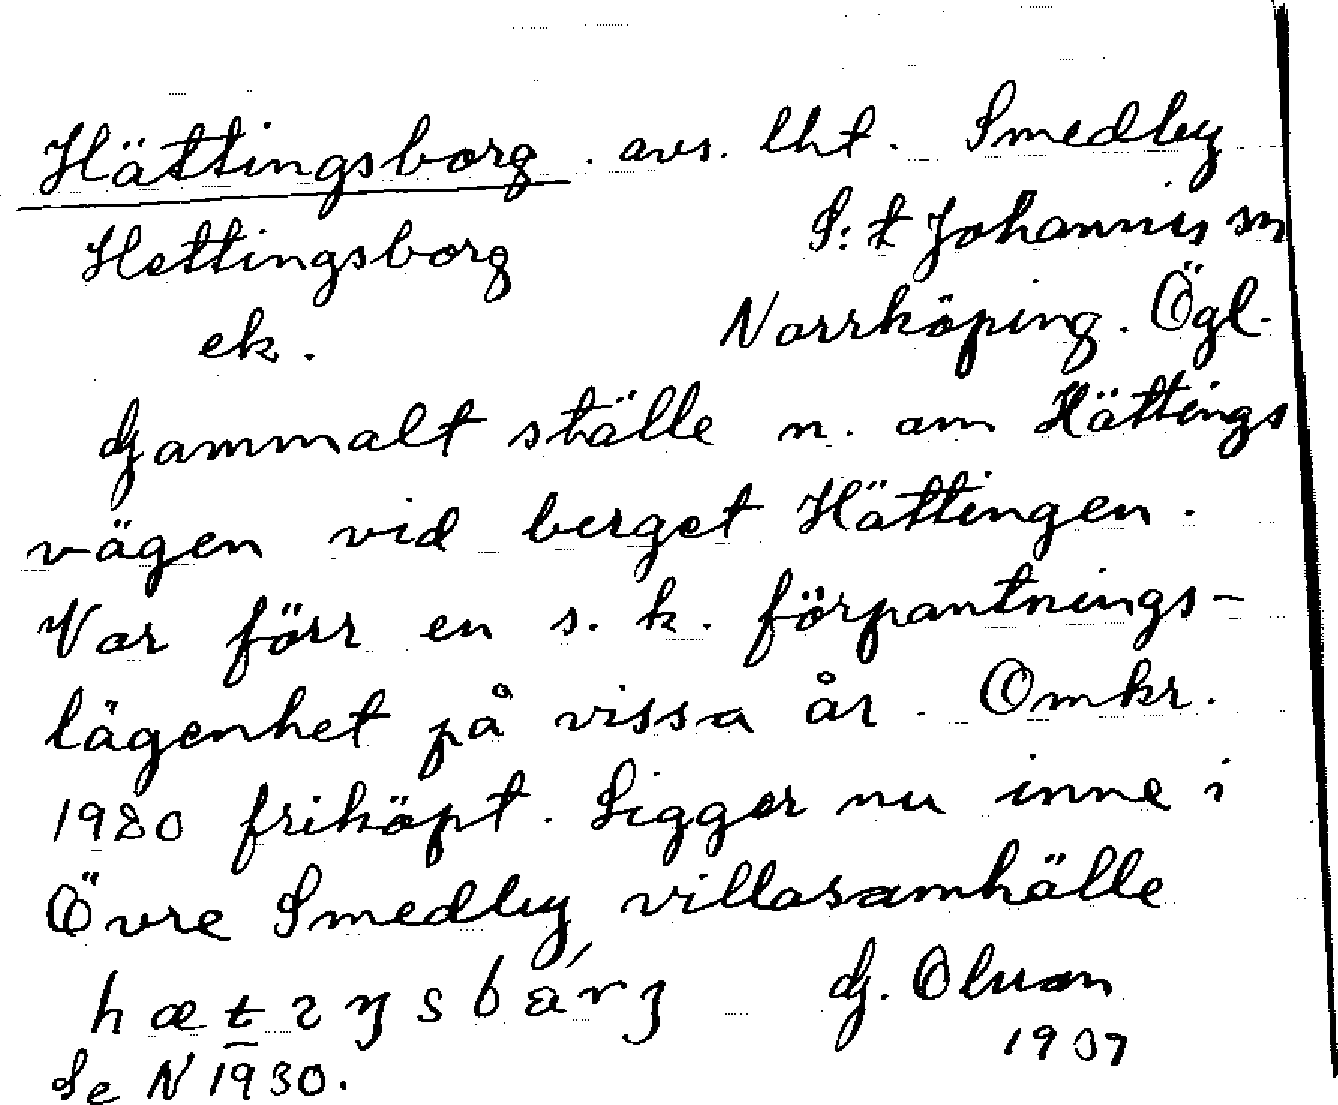 Hättingsborg. avs. lht. Smedby
Hettingsborg S:t Johannis sn
ek. Norrköping. Ögl.
Gammalt ställe n. om Hättings
vägen vid berget Hättingen.
Var förr en s. k. förpantnings-
lägenhet på vissa år. Omkr.
1920 friköpt. Ligger nu inne i
Övre Smedby villasamhälle
G. Olsson
1937
Se N 1930.